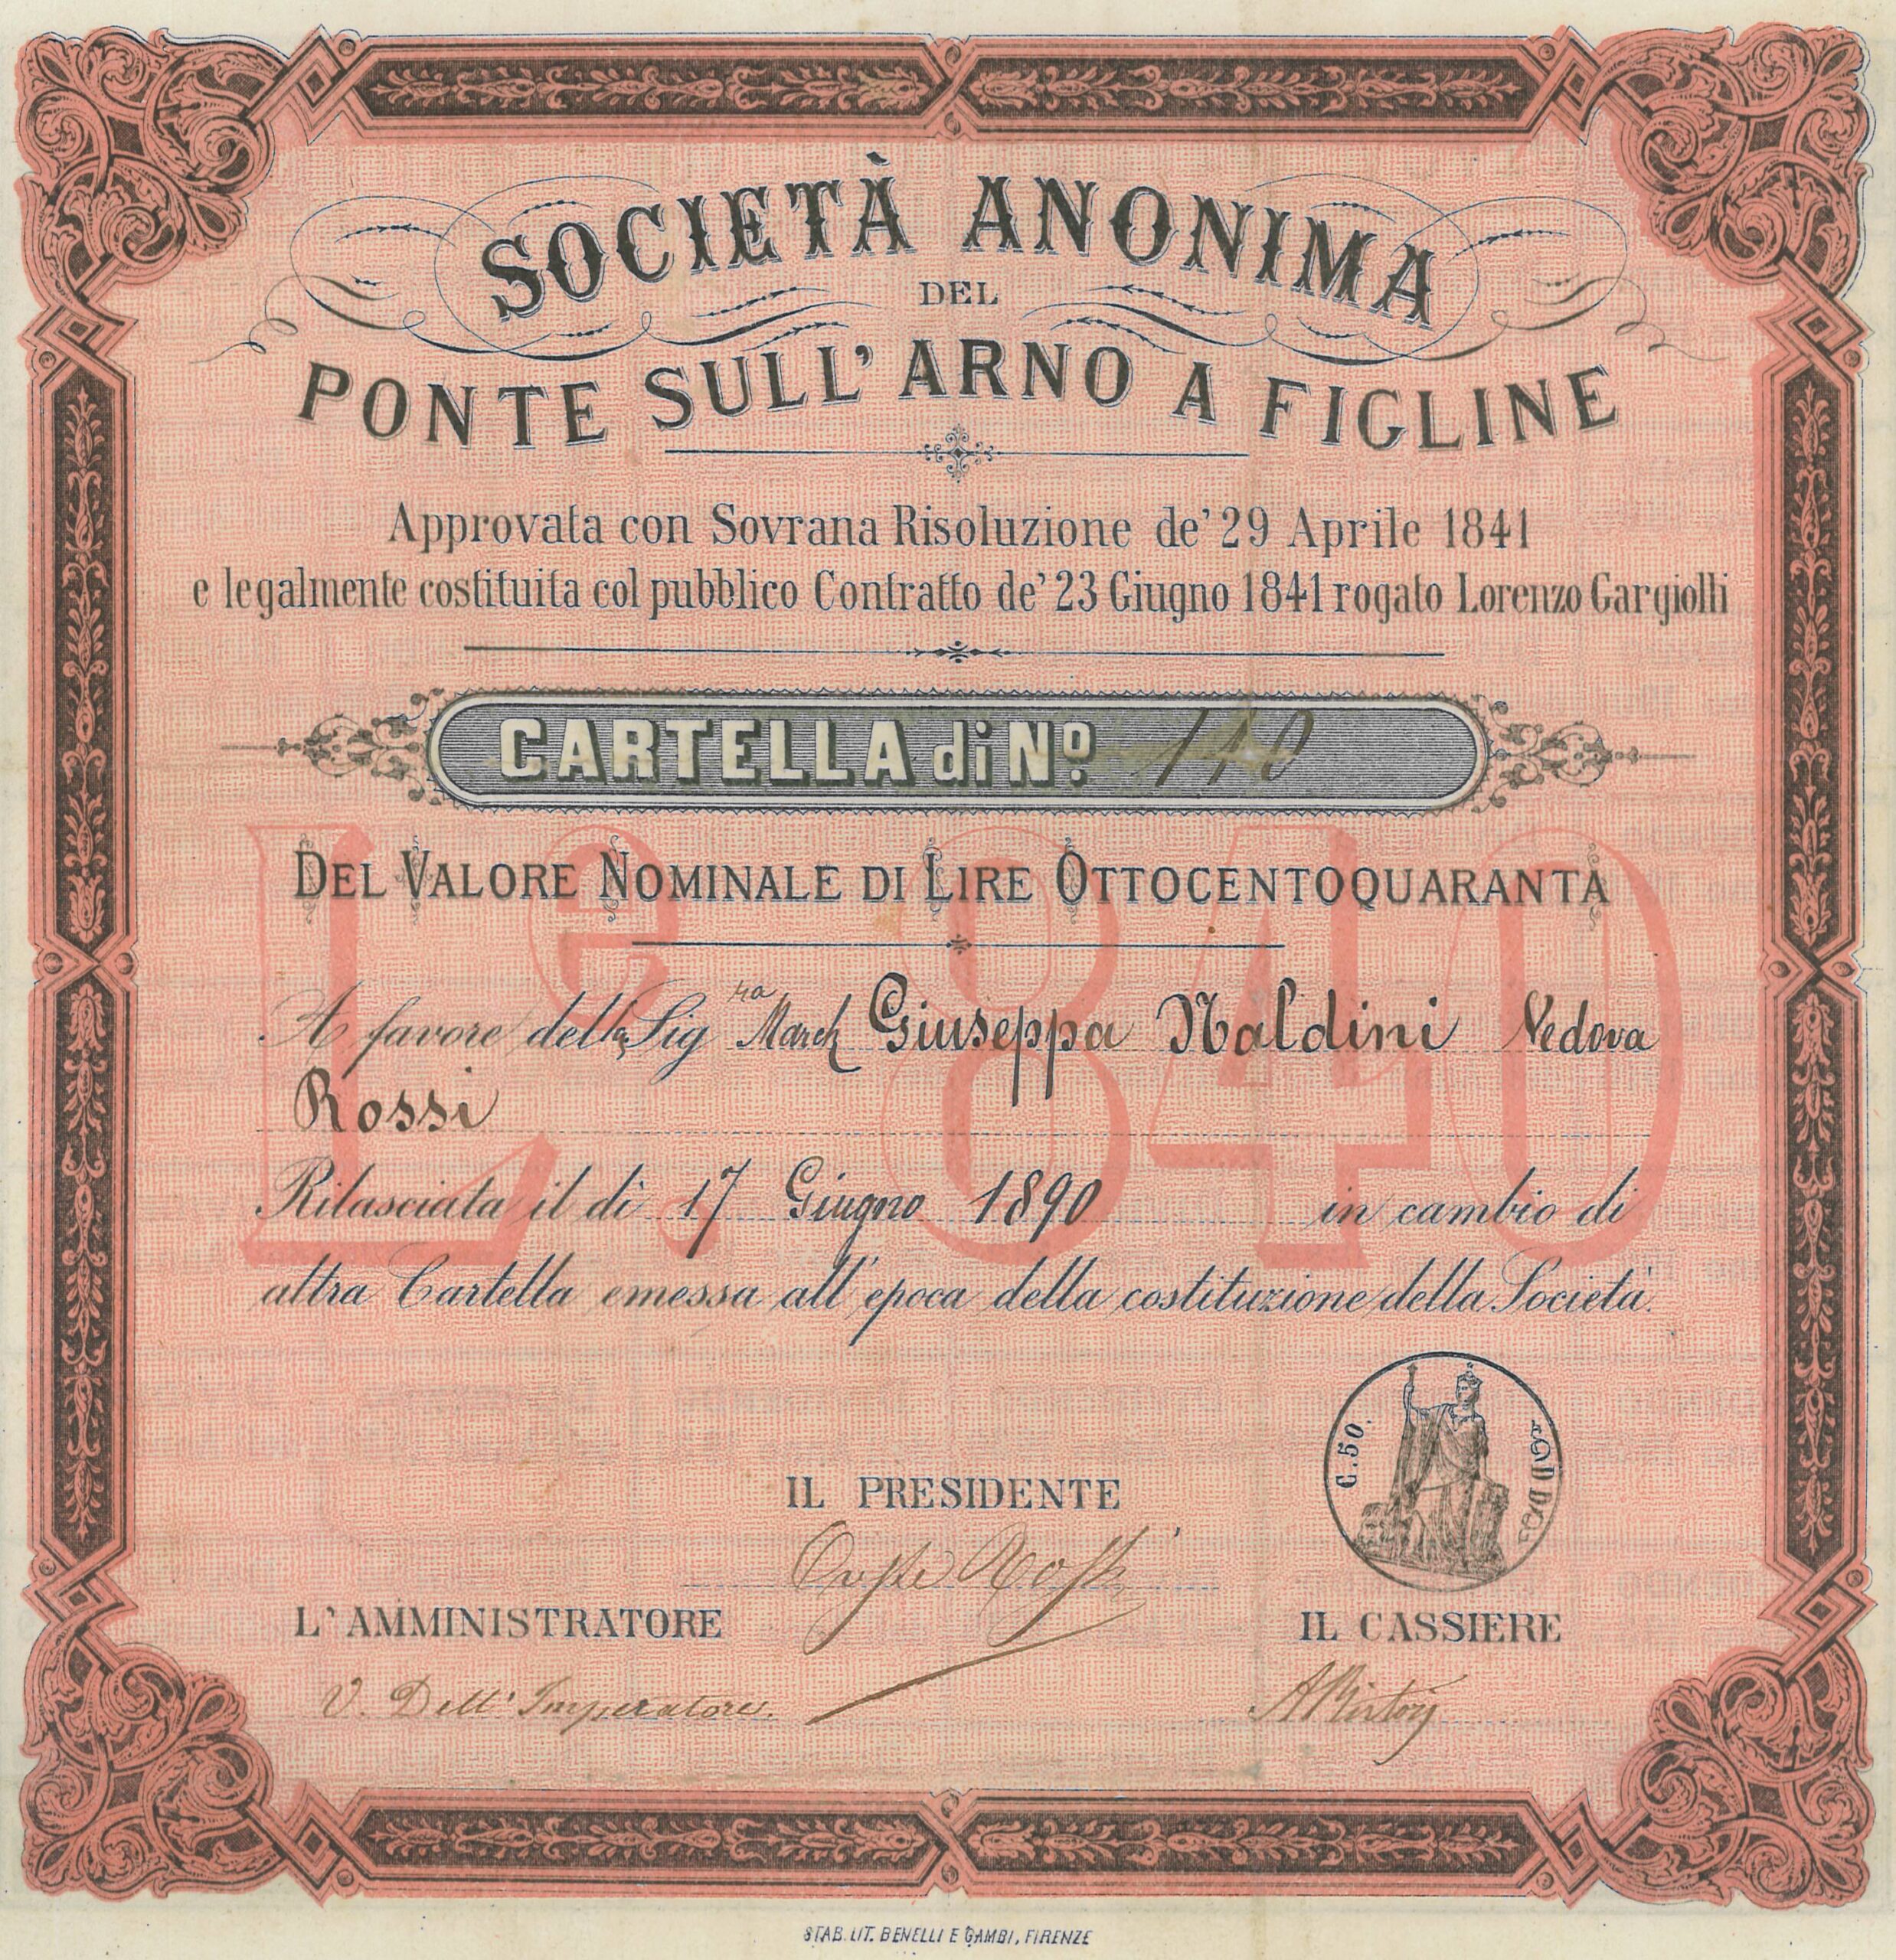 SOCIETÀ ANONIMA
DEL
PONTE SULL' ARNO A FIGLINE
Approvata con Sovrana Risoluzione de' 29 Aprile 1841
e legalmente costituita col pubblico Contratto de' 23 Giugno 1841 rogato Lorenzo Gargiolli
CARTELLA di Nº 110
DEL VALORE NOMINALE DI LIRE OTTOCENTOQUARANTA
Le. 840
A favore della Sigra March Giuseppa Naldini Vedova
Rossi
Rilasciata il dì 17 Giugno 1890 in cambio di
altra Cartella emessa all' epoca della costituzione della Società.
C. 50.
IL PRESIDENTE
L' AMMINISTRATORE
IL CASSIERE
V. Dell' Imperatore
STAB. LIT. BENELLI E GAMBI, FIRENZE